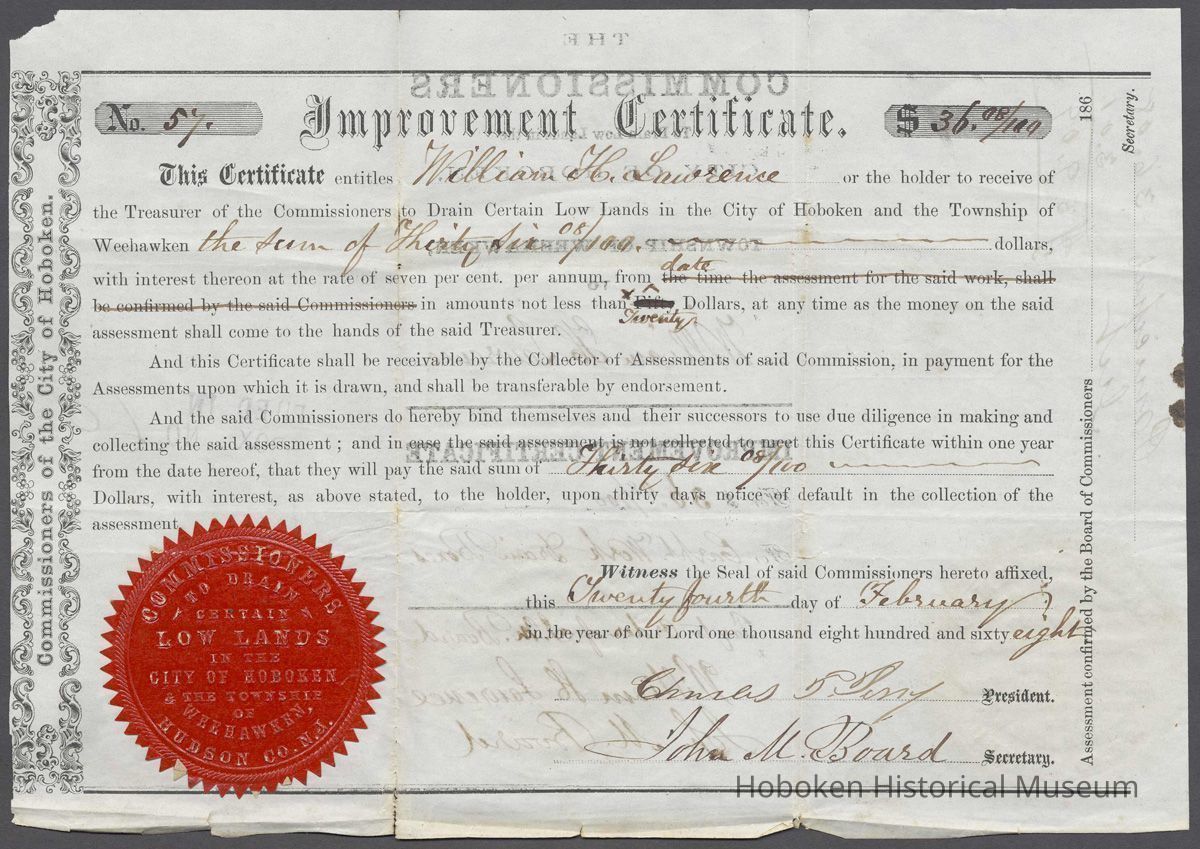 No. 57. Improvement Certificate. $ 36. 08/100
This Certificate entitles William H. Lawrence or the holder to receive of
the Treasurer of the Commissioners to Drain Certain Low Lands in the City of Hoboken and the Township of
Weehawken the sum of Thirty Six 08/100. dollars,
date
with interest thereon at the rate of seven per cent. per annum, from the time the assessment for the said work, shall
be confirmed by the said Commissioners in amounts not less than Fifty Dollars, at any time as the money on the said
Twenty
assessment shall come to the hands of the said Treasurer.
And this Certificate shall be receivable by the Collector of Assessments of said Commission, in payment for the
Assessments upon which it is drawn, and shall be transferable by endorsement.
And the said Commissioners do hereby bind themselves and their successors to use due diligence in making and
collecting the said assessment ; and in case the said assessment is not collected to meet this Certificate within one year
from the date hereof, that they will pay the said sum of Thirty Six 08/100
Dollars, with interest, as above stated, to the holder, upon thirty days notice of default in the collection of the
assessment.
Witness the Seal of said Commissioners hereto affixed,
this Twenty fourth day of February
in the year of our Lord one thousand eight hundred and sixty eight
Charles T. Perry President.
John M. Board Secretary.
Commissioners of the City of Hoboken.
COMMISSIONERS
TO DRAIN
CERTAIN
LOW LANDS
IN THE
CITY OF HOBOKEN
& THE TOWNSHIP
OF
WEEHAWKEN
HUDSON CO. N.J.
Assessment confirmed by the Board of Commissioners 186
Secretary.
THE
COMMISSIONERS
TOWNSHIP OF WEEHAWKEN,
IMPROVEMENT CERTIFICATE
Hoboken Historical Museum